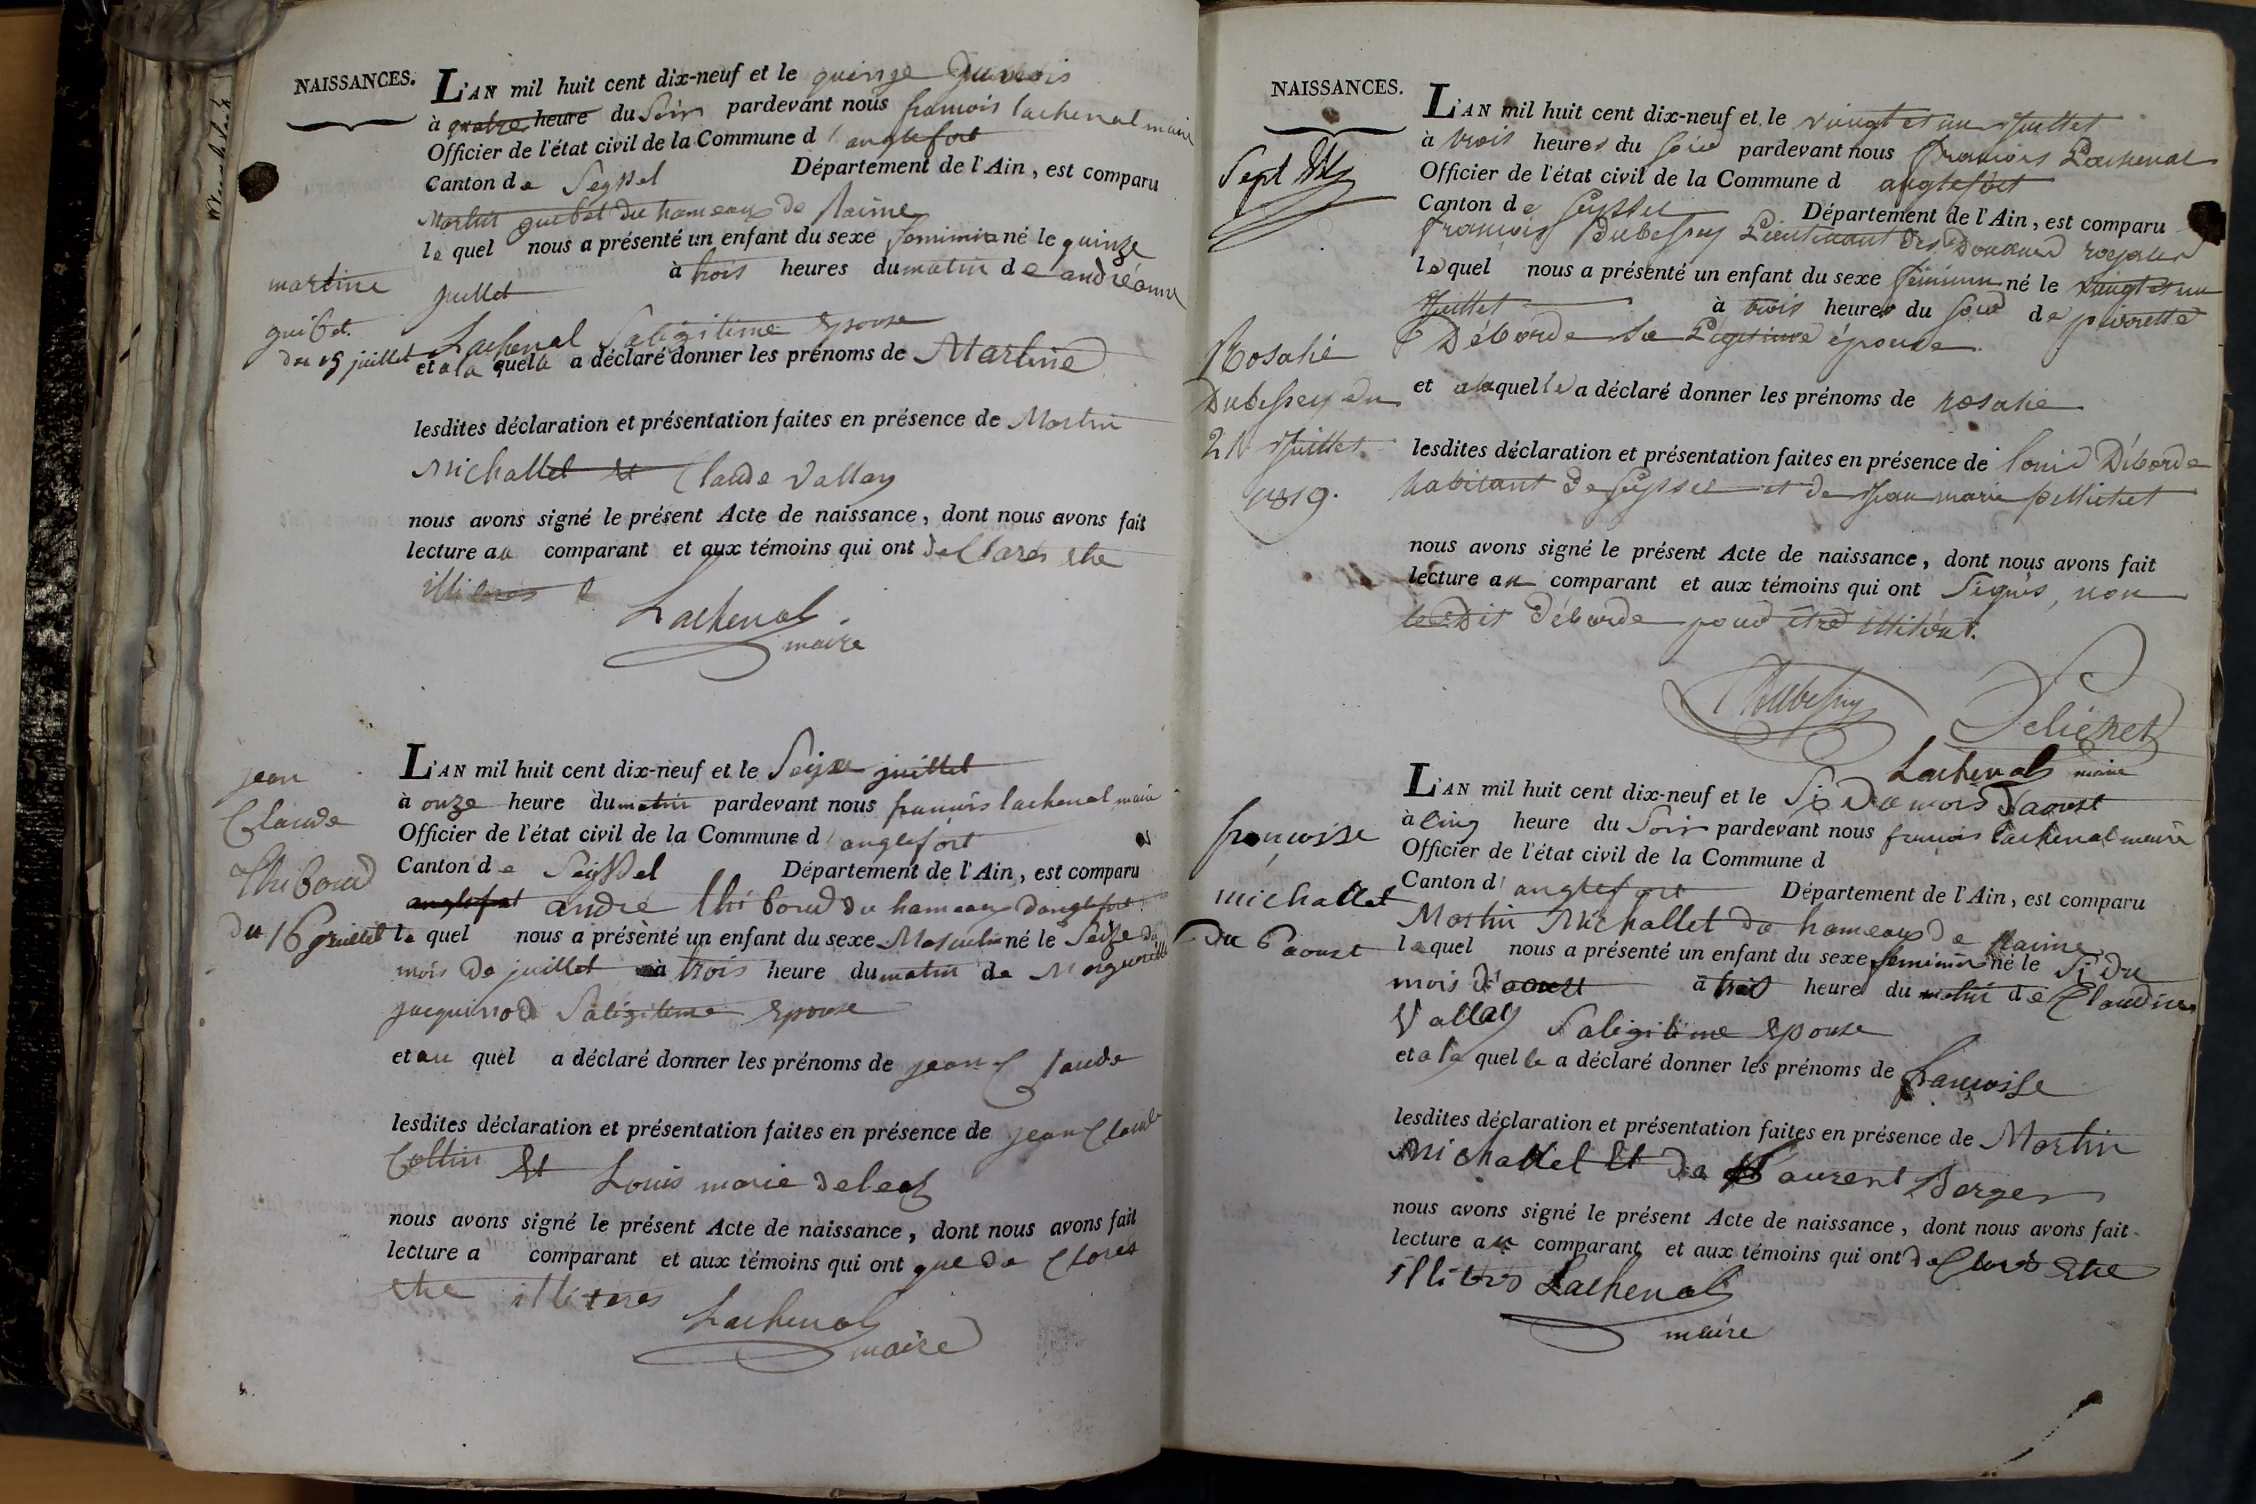 NAISSANCES.
L'AN mil huit cent dix-neuf et le quinze du mois
à quatre heure du Soir pardevant nous francois lachenal maire
Officier de l'état civil de la Commune d'anglefort
Canton de Seyssel Département de l'Ain, est comparu
Martin guibet du hameaux de
le quel nous a présenté un enfant du sexe feminin né le quinze
juillet à trois heures du matin de andréanne
Lachenal Salégitime Epouse
et a la quela a déclaré donner les prénoms de Martine
lesdites déclaration et présentation faites en présence de Martin
Michallet et Claude Vallay
nous avons signé le présent Acte de naissance, dont nous avons fait
lecture au comparant et aux témoins qui ont declarés etre
Lachenal
maire
martine
guibet
du 15 juillet
L'AN mil huit cent dix-neuf et le Seize juillet
à onze heure du matin pardevant nous francois lachenal maire
Officier de l'état civil de la Commune d'anglefort
Canton de Seyssel Département de l'Ain, est comparu
anglefort andré thiboud du hameaux danglefort
le quel nous a présenté un enfant du sexe Masculin né le Seize du
mois de juillet à trois heure du matin de Marguerite
Salégitime Epouse
et au quel a déclaré donner les prénoms de jean Claude
lesdites déclaration et présentation faites en présence de jean Claude
Collin Et Louis marie
nous avons signé le présent Acte de naissance, dont nous avons fait
lecture a comparant et aux témoins qui ont que de Clares
etre illiteres
Lachenal
maire
jean
Claude
Thiboud
du 16 juillet
NAISSANCES.
Sept
L'AN mil huit cent dix-neuf et le vingt et un Juillet
à trois heures du soir pardevant nous francois Lachenal
Officier de l'état civil de la Commune d anglefort
Canton de Seyssel Département de l'Ain, est comparu
francois Dubessey Lieutenant des Douanes royales
le quel nous a présenté un enfant du sexe féminin né le vingt et un
Juillet à trois heures du soir de pierrette
Déborde Sa Légitime épouse
et a laquelle a déclaré donner les prénoms de rosalie
lesdites déclaration et présentation faites en présence de louis Déborde
habitant de Seyssel et de Jean marie pellichet
nous avons signé le présent Acte de naissance, dont nous avons fait
lecture au comparant et aux témoins qui ont Signés, non
ledit Déborde pour être
Dubessey
Lachenal maire
Rosalie
Dubessey du
21 Juillet
1819.
L'AN mil huit cent dix-neuf et le Six du mois d'aoust
à Cinq heure du Soir pardevant nous francois lachenal maire
Officier de l'état civil de la Commune d
Canton d'anglefort Département de l'Ain, est comparu
Martin Michallet du hameaux de
le quel nous a présenté un enfant du sexe feminin né le Si du
mois d'aoust à trois heures du matin de Claudine
Vallay Salégitime Epouse
et a la quelle a déclaré donner les prénoms de francoisse
lesdites déclaration et présentation faites en présence de Martin
Michallet Et de Laurent Berger
nous avons signé le présent Acte de naissance, dont nous avons fait
lecture au comparant et aux témoins qui ont de Clarés Etre
Lachenal
maire
francoisse
michallet
Du 6 aoust